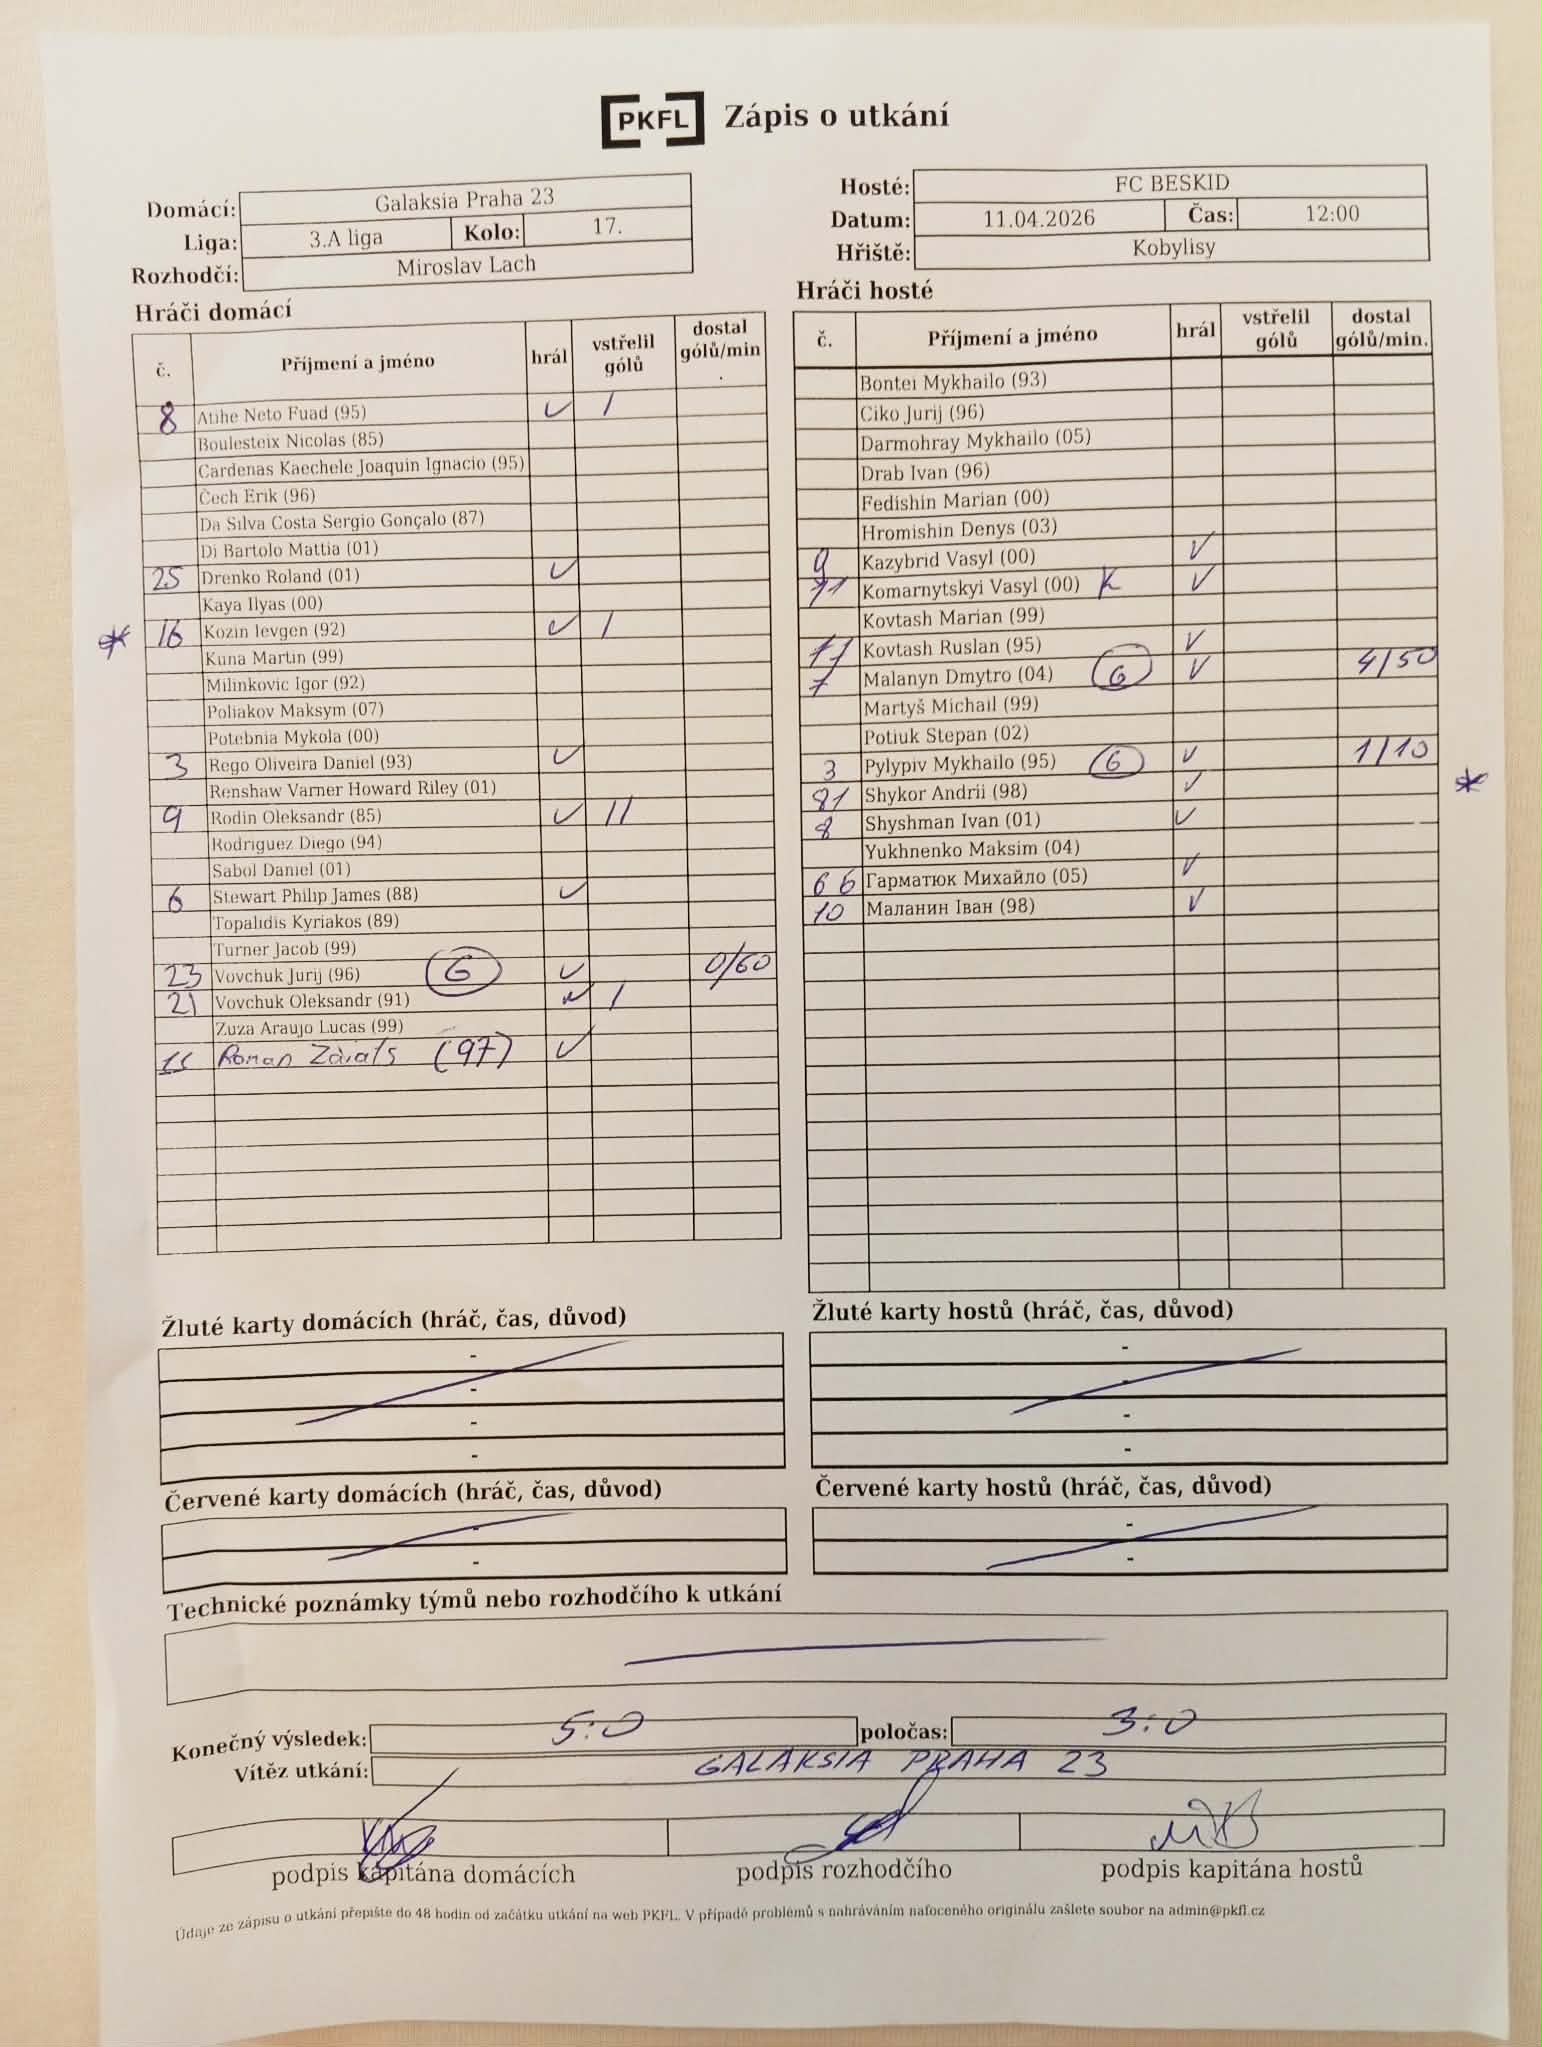 PKFL Zápis o utkání
Domácí: Galaksia Praha 23
Liga: 3.A liga Kolo: 17.
Rozhodčí: Miroslav Lach
Hosté: FC BESKID
Datum: 11.04.2026 Čas: 12:00
Hřiště: Kobylisy
Hráči domácí
č. Příjmení a jméno hrál vstřelil gólů dostal gólů/min.
8 Atihe Neto Fuad (95) ✓ I
Boulesteix Nicolas (85)
Cardenas Kaechele Joaquin Ignacio (95)
Čech Erik (96)
Da Silva Costa Sergio Gonçalo (87)
Di Bartolo Mattia (01)
25 Drenko Roland (01) ✓
Kaya Ilyas (00)
* 16 Kozin Ievgen (92) ✓ I
Kuna Martin (99)
Milinkovic Igor (92)
Poliakov Maksym (07)
Potebnia Mykola (00)
3 Rego Oliveira Daniel (93) ✓
Renshaw Varner Howard Riley (01)
9 Rodin Oleksandr (85) ✓ II
Rodriguez Diego (94)
Sabol Daniel (01)
6 Stewart Philip James (88) ✓
Topalidis Kyriakos (89)
Turner Jacob (99)
23 Vovchuk Jurij (96) G ✓ 0/60
21 Vovchuk Oleksandr (91) ✓ I
Zuza Araujo Lucas (99)
11 Roman Zaiats (97) ✓
Hráči hosté
č. Příjmení a jméno hrál vstřelil gólů dostal gólů/min.
Bontei Mykhailo (93)
Ciko Jurij (96)
Darmohray Mykhailo (05)
Drab Ivan (96)
Fedishin Marian (00)
Hromishin Denys (03)
9 Kazybrid Vasyl (00) ✓
71 Komarnytskyi Vasyl (00) K ✓
Kovtash Marian (99)
17 Kovtash Ruslan (95) ✓
7 Malanyn Dmytro (04) G ✓ 4/50
Martyš Michail (99)
Potiuk Stepan (02)
3 Pylypiv Mykhailo (95) G ✓ 1/10
81 Shykor Andrii (98) ✓ *
8 Shyshman Ivan (01) ✓
Yukhnenko Maksim (04)
66 Гарматюк Михайло (05) ✓
10 Маланин Іван (98) ✓
Žluté karty domácích (hráč, čas, důvod)
-
-
-
-
Žluté karty hostů (hráč, čas, důvod)
-
-
-
-
Červené karty domácích (hráč, čas, důvod)
-
-
Červené karty hostů (hráč, čas, důvod)
-
-
Technické poznámky týmů nebo rozhodčího k utkání
Konečný výsledek: 5:0 poločas: 3:0
Vítěz utkání: GALAKSIA PRAHA 23
podpis kapitána domácích podpis rozhodčího podpis kapitána hostů
Údaje ze zápisu o utkání přepište do 48 hodin od začátku utkání na web PKFL. V případě problémů s nahráváním nafoceného originálu zašlete soubor na admin@pkfl.cz